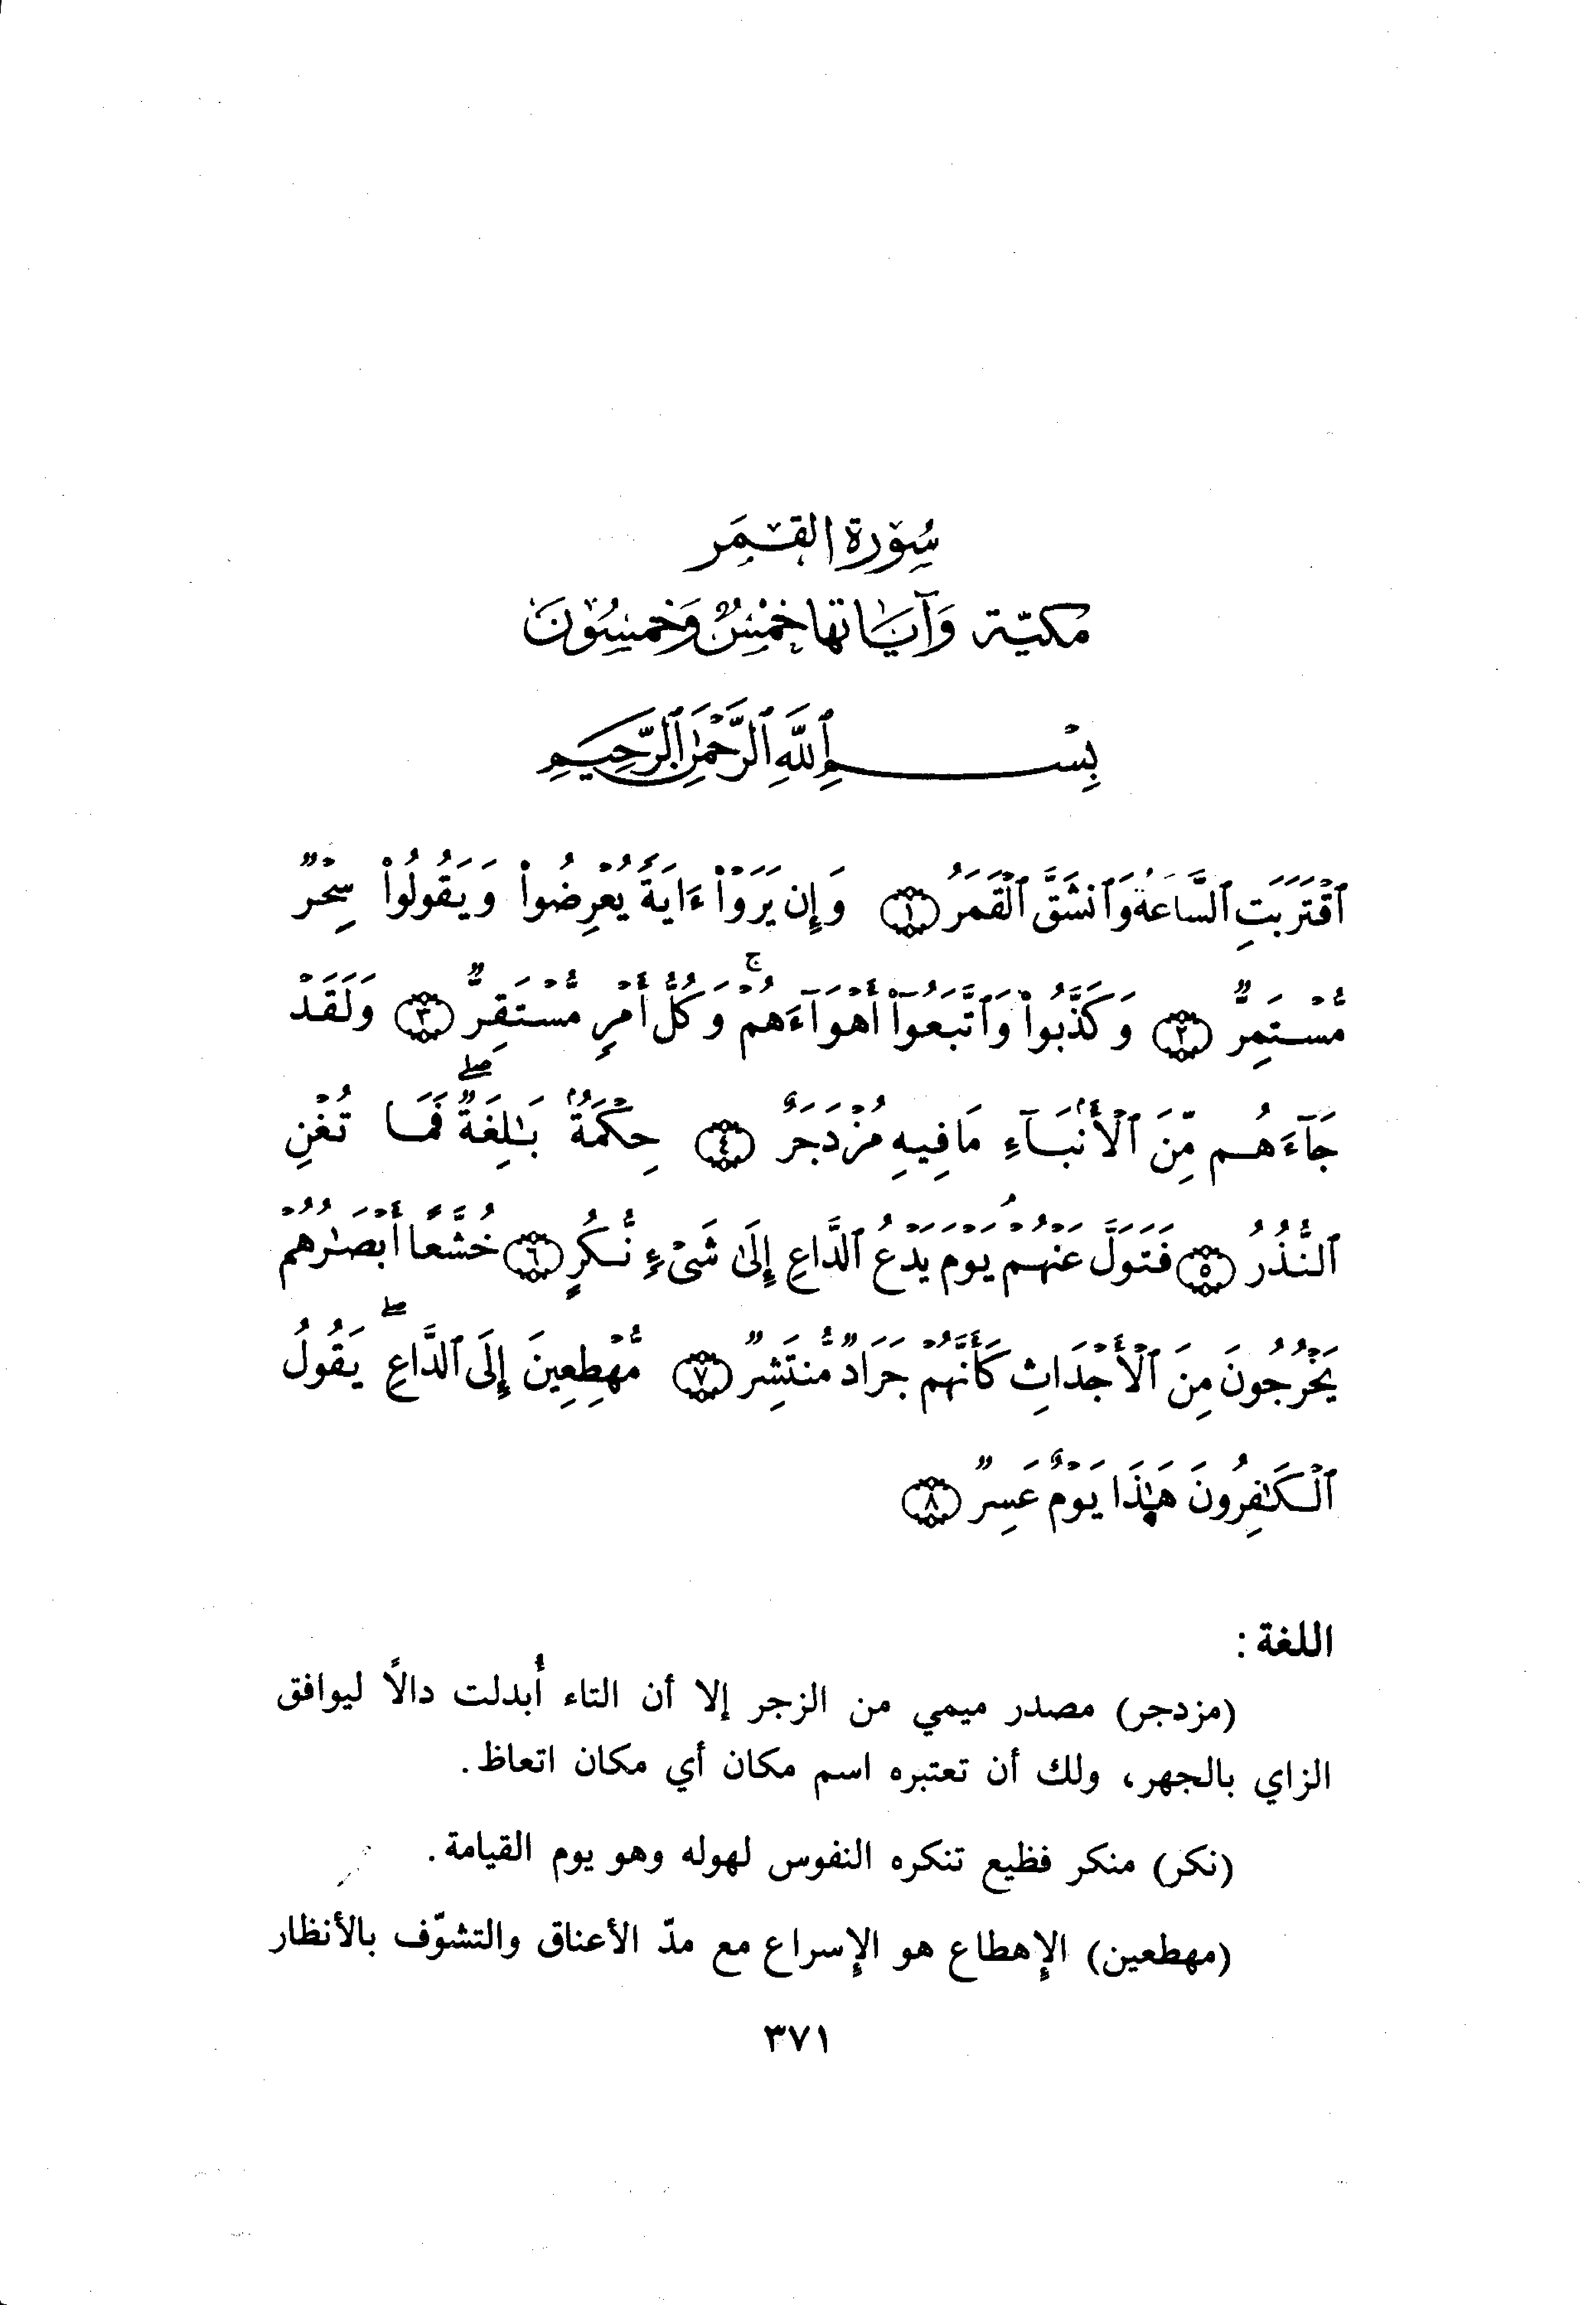 سُورَة القَمَر
مَكيّة وَآيَاتها خَمْسٌ وَخَمسُون
بِسْمِ ٱللَّهِ ٱلرَّحْمَٰنِ ٱلرَّحِيمِ
ٱقْتَرَبَتِ ٱلسَّاعَةُ وَٱنشَقَّ ٱلْقَمَرُ ١ وَإِن يَرَوْا۟ ءَايَةً يُعْرِضُوا۟ وَيَقُولُوا۟ سِحْرٌ
مُّسْتَمِرٌّ ٢ وَكَذَّبُوا۟ وَٱتَّبَعُوٓا۟ أَهْوَآءَهُمْ ۚ وَكُلُّ أَمْرٍ مُّسْتَقِرٌّ ٣ وَلَقَدْ
جَآءَهُم مِّنَ ٱلْأَنۢبَآءِ مَا فِيهِ مُزْدَجَرٌ ٤ حِكْمَةٌۢ بَٰلِغَةٌ ۖ فَمَا تُغْنِ
ٱلنُّذُرُ ٥ فَتَوَلَّ عَنْهُمْ ۘ يَوْمَ يَدْعُ ٱلدَّاعِ إِلَىٰ شَىْءٍ نُّكُرٍ ٦ خُشَّعًا أَبْصَٰرُهُمْ
يَخْرُجُونَ مِنَ ٱلْأَجْدَاثِ كَأَنَّهُمْ جَرَادٌ مُّنتَشِرٌ ٧ مُّهْطِعِينَ إِلَى ٱلدَّاعِ ۖ يَقُولُ
ٱلْكَٰفِرُونَ هَٰذَا يَوْمٌ عَسِرٌ ٨
اللغة :
(مزدجر) مصدر ميمي من الزجر إلا أن التاء أُبدلت دالًا ليوافق
الزاي بالجهر، ولك أن تعتبره اسم مكان أي مكان اتعاظ.
(نكر) منكر فظيع تنكره النفوس لهوله وهو يوم القيامة.
(مهطعين) الإهطاع هو الإسراع مع مدّ الأعناق والتشوّف بالأنظار
٣٧١